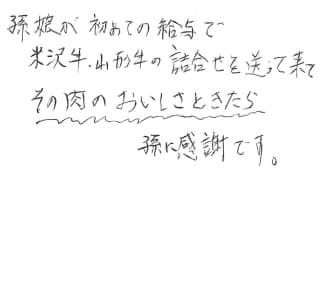 孫娘が初めての給与で
米沢牛、山形牛の詰合せを送って来て
その肉のおいしさときたら
孫に感謝です。